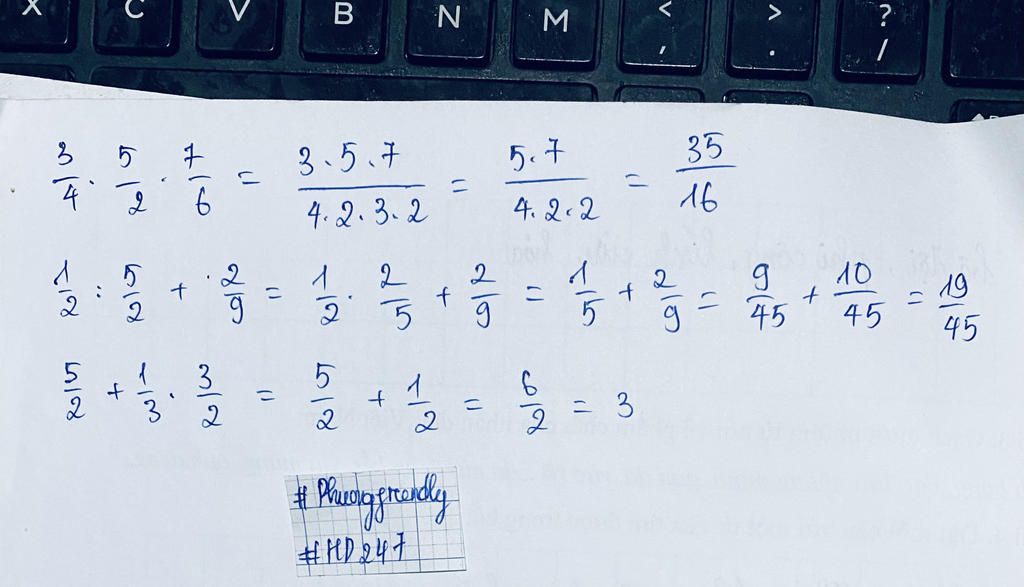 X C V B N M < , > . ? /
3/4 . 5/2 . 7/6 = 3.5.7/4.2.3.2 = 5.7/4.2.2 = 35/16
1/2 : 5/2 + 2/9 = 1/2 . 2/5 + 2/9 = 1/5 + 2/9 = 9/45 + 10/45 = 19/45
5/2 + 1/3 . 3/2 = 5/2 + 1/2 = 6/2 = 3
# Phuonggreendly
#HD247